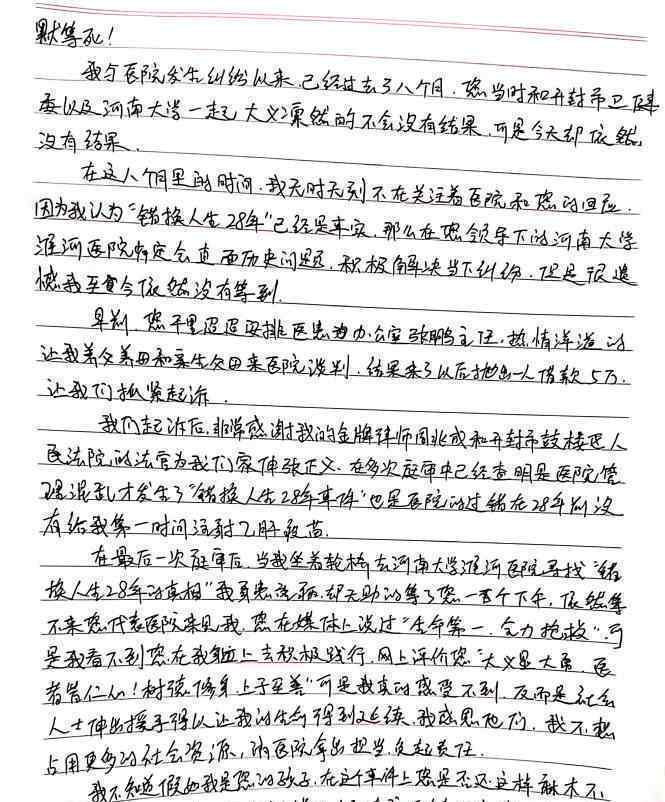 默等死！
我与医院发生纠纷以来，已经过去了八个月，您当时和开封市卫健
委以及河南大学一起大义凛然的不会没有结果，可是今天却依然
没有结果．
在这八个月里的时间，我无时无刻不在关注着医院和您的回应．
因为我认为“错换人生28年”已经是事实，那么在您领导下的河南大学
淮河医院肯定会直面历史问题，积极解决当下纠纷，但是很遗
憾我至今依然没有等到．
早前，您千里迢迢安排医患办公室张鹏主任，热情洋溢的
让我养父养母和亲生父母来医院谈判，结果来了以后抛出一人借款5万．
让我们抓紧起诉．
我们起诉后，非常感谢我的金牌律师周兆成和开封市鼓楼区人
民法院的法官为我们家伸张正义，在多次庭审中已经查明是医院管
理混乱才发生了“错换人生28年事件”也是医院的过错在28年前没
有给我第一时间注射乙肝疫苗．
在最后一次庭审后，当我坐着轮椅去河南大学淮河医院寻找“错
换人生28年的真相”我身患癌症，却无助的等了您一整个下午，依然等
不来您代表医院来见我，您在媒体上说过“生命第一，全力抢救”．可
是我看不到您在我身上去积极践行，网上评价您“大义显大勇，医
者皆仁心！树德修身，上于至善”可是我真的感受不到，反而是社会
人士伸出援手得以让我的生命得到延续，我感恩他们，我不想
占用更多的社会资源，请医院拿出担当，负起责任．
我不知道假如我是您的孩子，在这个事件上您是否还这样麻木不